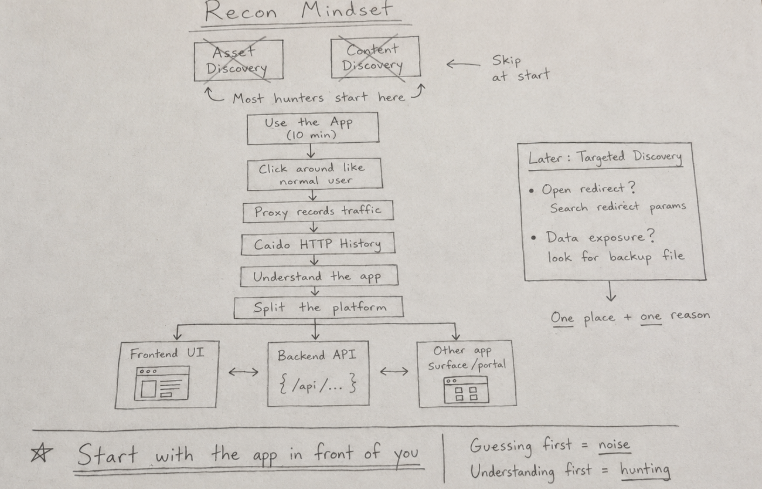 Recon Mindset
Asset
Discovery
Content
Discovery
Skip
at start
Most hunters start here
Use the App
(10 min)
Click around like
normal user
Proxy records traffic
Caido HTTP History
Understand the app
Split the platform
Frontend UI
Backend API
{ /api/... }
Other app
surface/portal
Later: Targeted Discovery
• Open redirect?
Search redirect params
• Data exposure?
look for backup file
One place + one reason
Start with the app in front of you
Guessing first = noise
Understanding first = hunting